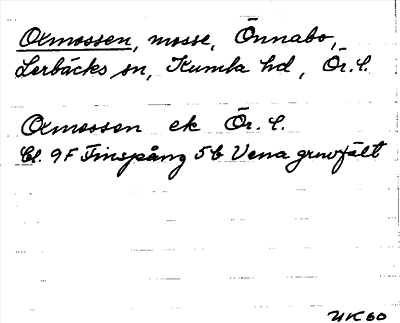 Oxmossen, mosse, Önnabo,
Lerbäcks sn, Kumla hd, Ör. l.
Oxmossen ek Ör. l.
Bl. 9F Finspång 5b Vena gruvfält
UK60